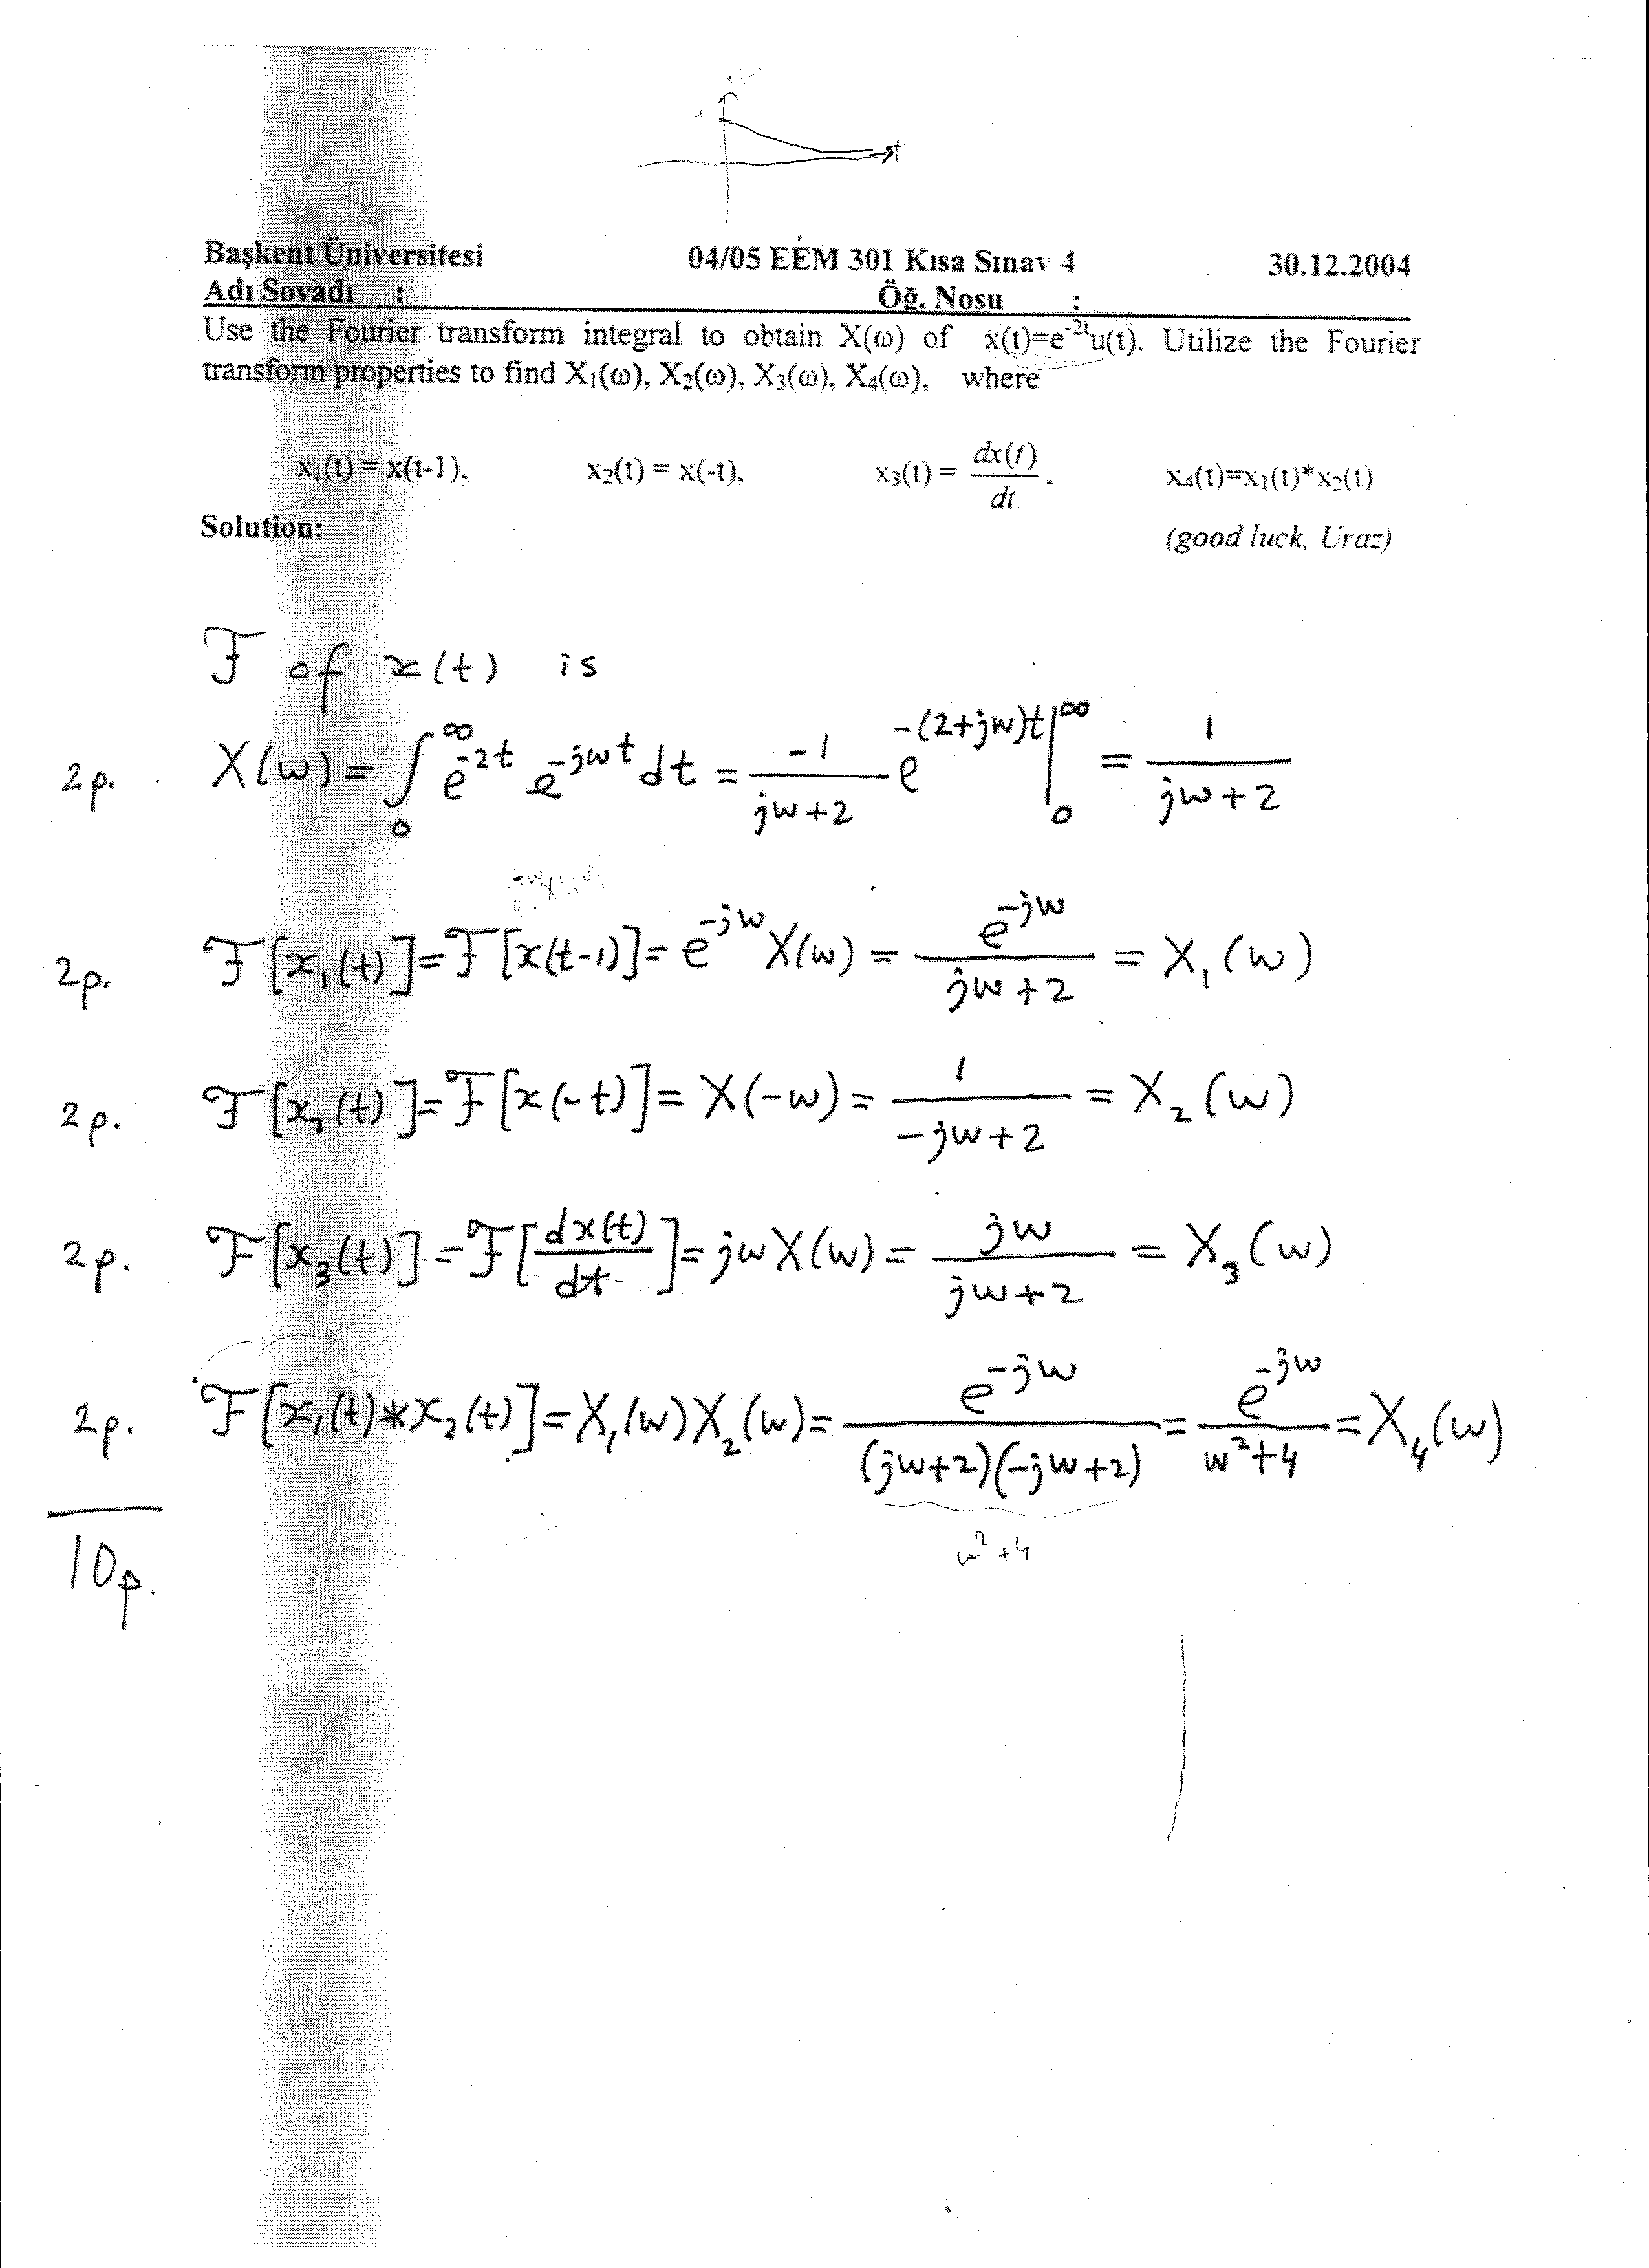 1
t
Başkent Üniversitesi 04/05 EEM 301 Kısa Sınav 4 30.12.2004
Adı Soyadı : Öğ. Nosu :
Use the Fourier transform integral to obtain X(ω) of x(t)=e^-2t u(t). Utilize the Fourier
transform properties to find X₁(ω), X₂(ω), X₃(ω), X₄(ω), where
x₁(t) = x(t-1), x₂(t) = x(-t), x₃(t) = dx(t)/dt . x₄(t)=x₁(t)*x₂(t)
Solution: (good luck, Uraz)
F of x(t) is
2p. X(w) = ∫₀^∞ e^-2t e^-jwt dt = -1/(jw+2) e^-(2+jw)t |₀^∞ = 1/(jw+2)
2p. F[x₁(t)]=F[x(t-1)]= e^-jw X(w) = e^-jw/(jw+2) = X₁(w)
2p. F[x₂(t)]=F[x(-t)]= X(-w) = 1/(-jw+2) = X₂(w)
2p. F[x₃(t)]=F[dx(t)/dt]= jwX(w) = jw/(jw+2) = X₃(w)
2p. F[x₁(t)*x₂(t)]=X₁(w)X₂(w)= e^-jw/((jw+2)(-jw+2)) = e^-jw/(w²+4) = X₄(w)
w²+4
10p.